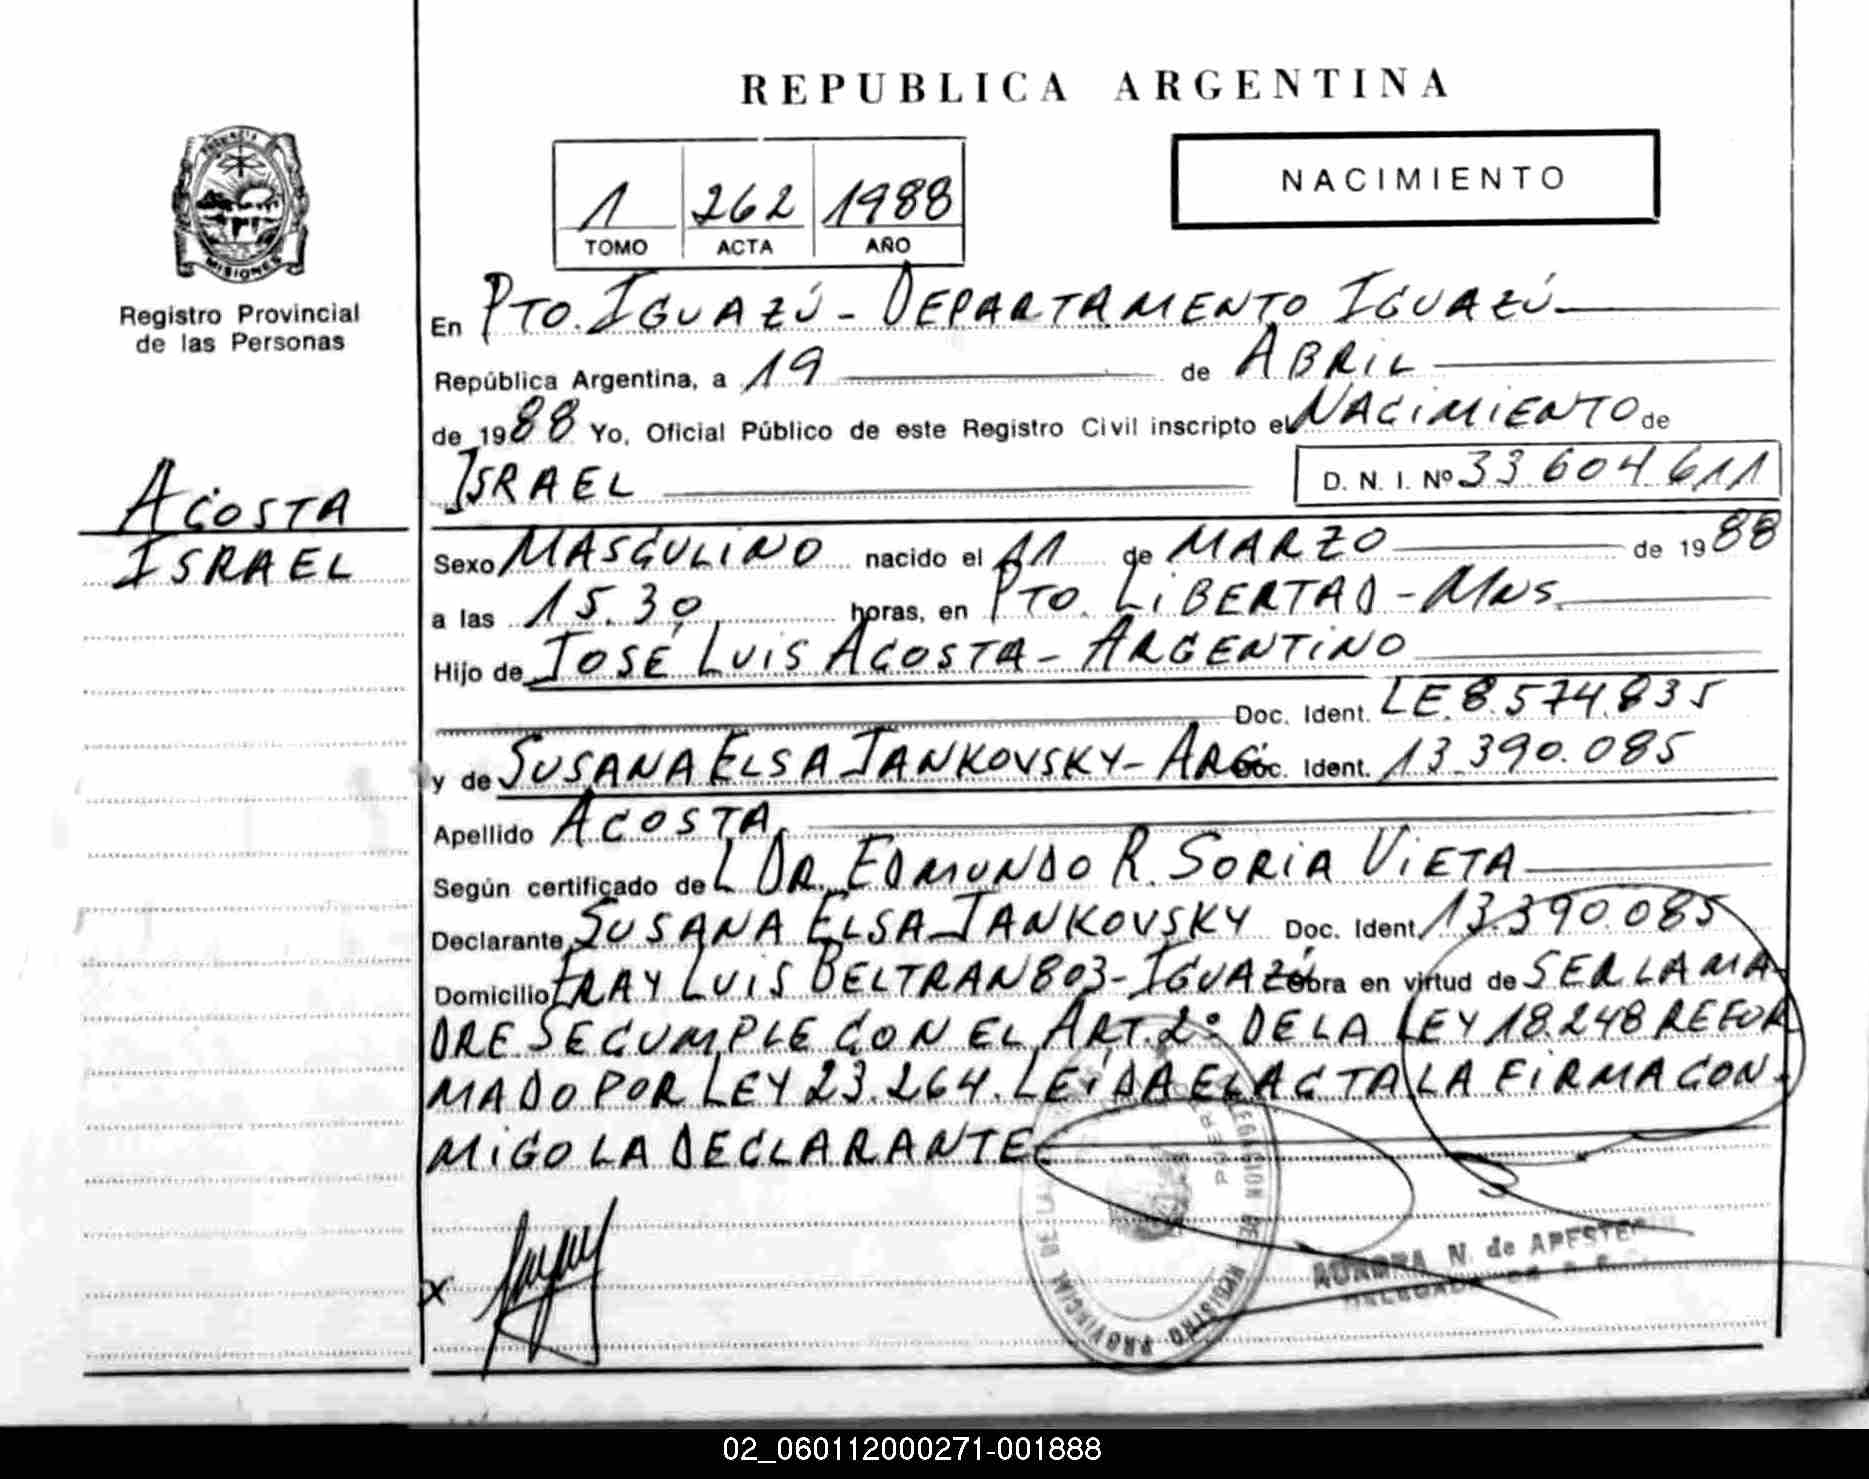 REPUBLICA ARGENTINA
NACIMIENTO
1 262 1988
TOMO ACTA AÑO
PROVINCIA
MISIONES
Registro Provincial
de las Personas
ACOSTA
ISRAEL
En PTO. IGUAZÚ - DEPARTAMENTO IGUAZÚ
República Argentina, a 19 de ABRIL
de 1988 Yo, Oficial Público de este Registro Civil inscripto el NACIMIENTO de
ISRAEL D. N. I. Nº 33.604.611
Sexo MASCULINO nacido el 11 de MARZO de 1988
a las 15.30 horas, en PTO. LIBERTAD - MNS.
Hijo de JOSÉ LUIS ACOSTA - ARGENTINO
Doc. Ident. LE. 8.574.835
y de SUSANA ELSA JANKOVSKY - ARG. Doc. Ident. 13.390.085
Apellido ACOSTA
Según certificado del DR. EDMUNDO R. SORIA VIETA
Declarante SUSANA ELSA JANKOVSKY Doc. Ident. 13.390.085
Domicilio FRAY LUIS BELTRAN 803 - IGUAZÚ obra en virtud de SER LA MA-
DRE SE CUMPLE CON EL ART. 2º DE LA LEY 18.248 REFOR
MADO POR LEY 23.264. LEIDA EL ACTA LA FIRMA CON-
MIGO LA DECLARANTE
X
REGISTRO PROVINCIAL DE
N. de
02_060112000271-001888